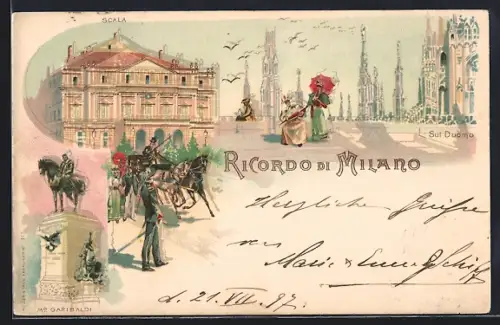 SCALA
Sul Duomo
RICORDO DI MILANO
Herzliche Grüße
von
Marie &
d. 21. VII. 97.
Mto GARIBALDI